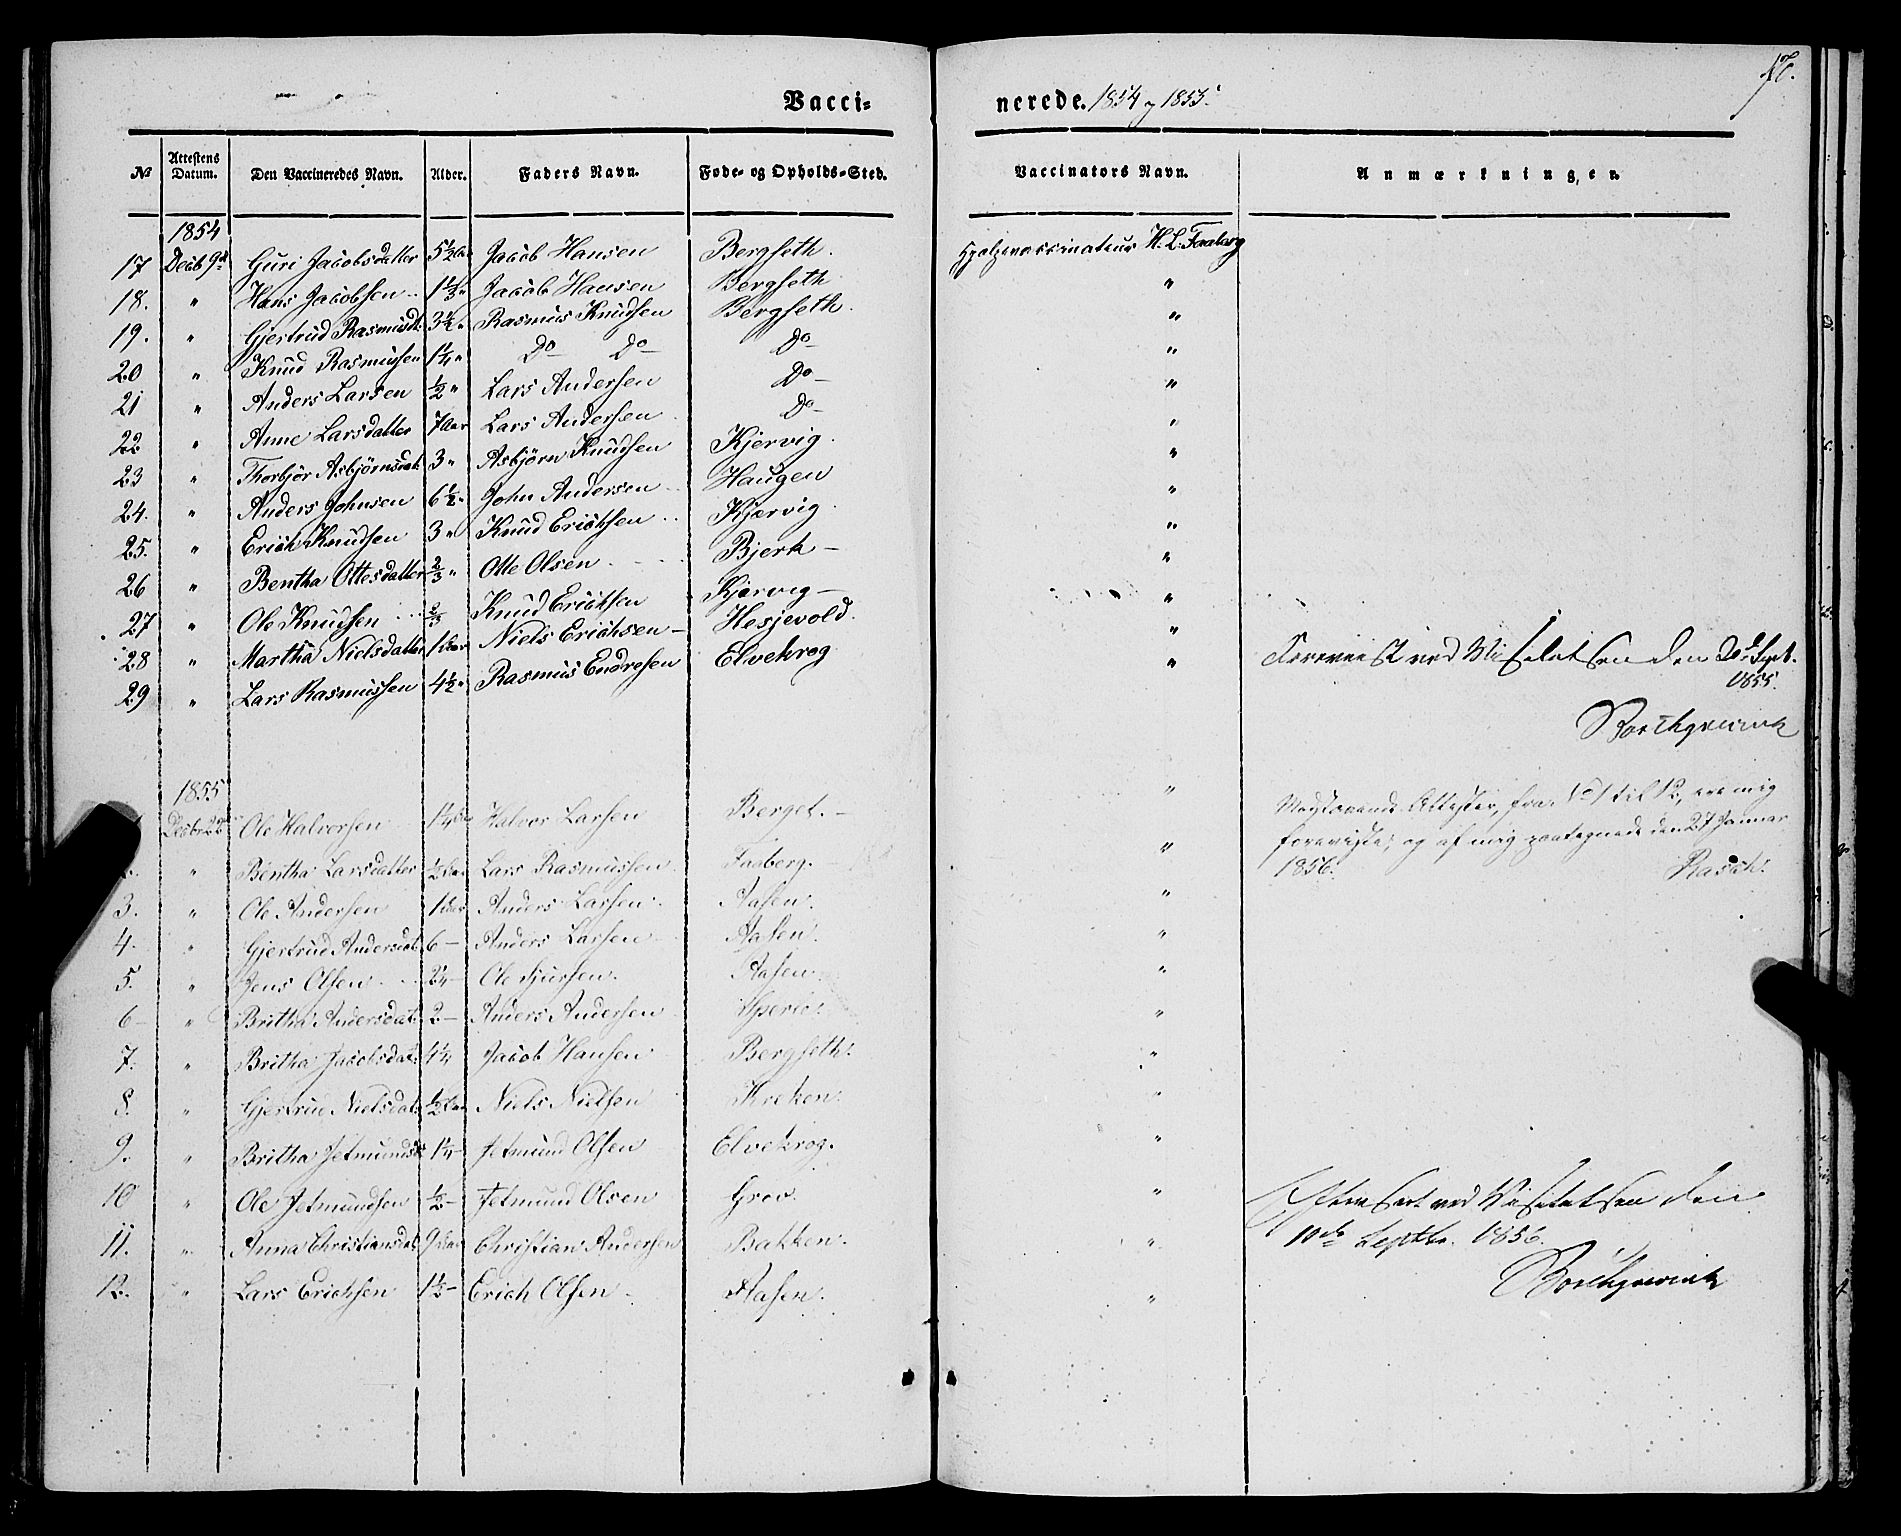 Vacci- nerede. 1854 og 1855.
No Attestens Datum. Den Vaccineredes Navn. Alder. Faders Navn. Føde- og Opholds-Sted. Vaccinators Navn. Anmærkninger.
1854
17 Decb 9de Guri Jacobsdatter 5½ Aar Jacob Hansen Bergseth. Hjelpevaccinateur H. L. Faaberg
18. " Hans Jacobsen 1½ " Jacob Hansen Bergseth "
19. " Gjertrud Rasmusdt. 3½ " Rasmus Knudsen Bergseth. "
20 " Knud Rasmussen 1¼ " Do Do Do "
21 " Anders Larsen ½ " Lars Andersen Do "
22 " Anne Larsdatter 7 Aar Lars Andersen Do "
23 " Thorbjør Asbjörnsdat. 3 " Asbjørn Knudsen Kjervig. "
24. " Anders Johnsen 6½ " John Andersen Haugen "
25. " Erich Knudsen 3 " Knud Erichsen Kjærvig. "
26 " Bentha Ottesdatter ⅔ " Otte Olsen Bjerk "
27 " Ole Knudsen ⅔ Knud Erichsen Kjærvig "
28 " Martha Nielsdatter 1 Aar Niels Erichsen Hesjevold. "
29 " Lars Rasmussen 4½ " Rasmus Endresen Elvekrog " Foreviist ved Visitatsen den Sept.
1855.
Borchgrevink
1855
Decbr 22 Ole Halvorsen 1¼ Halvor Larsen Berget. " Attester, fra No 1 til 12, ere mig
" Bentha Larsdatter ½ Aar Lars Rasmussen Faaberg. " foreviste, og af mig paategnede den 27 Januar
1856. Rasch.
3. " Ole Andersen 1 Aar Anders Larsen Aasen. "
4. " Gjertrud Andersdat. 6 Anders Larsen Aasen. "
5. " Jens Olsen 2¼ Ole Aasen "
6 " Britha Andersdat. 2 Anders Andersen "
7. " Britha Jacobsdat. 1¼ Jacob Hansen Bergseth. "
8. " Gjertrud Nielsdat. ½ Aar Niels Nielsen Kreken. "
9. " Britha Jetmundsd. 1¼ Jetmund Olsen Elvekrog. "
10 " Ole Jetmundsen ½ Jetmund Olsen Grov. " ved Visitatsen den
11. " Anna Christiansdat. 9 Aar Christian Andersen Bakken. " 10de Septbr. 1856.
12. " Lars Erichsen 1½ Erich Olsen Aasen. " Borchgrevink